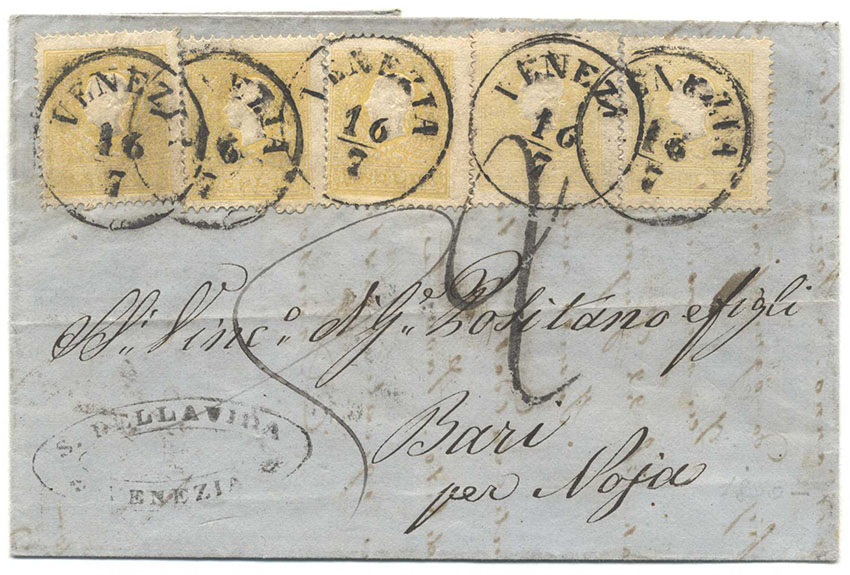 VENEZIA
16/7
VENEZIA
16/7
VENEZIA
16/7
VENEZIA
16/7
VENEZIA
16/7
Sr. Vinc.o di G.e Positano e figli
Bari
per Noja
S. DELLA VIDA
VENEZIA